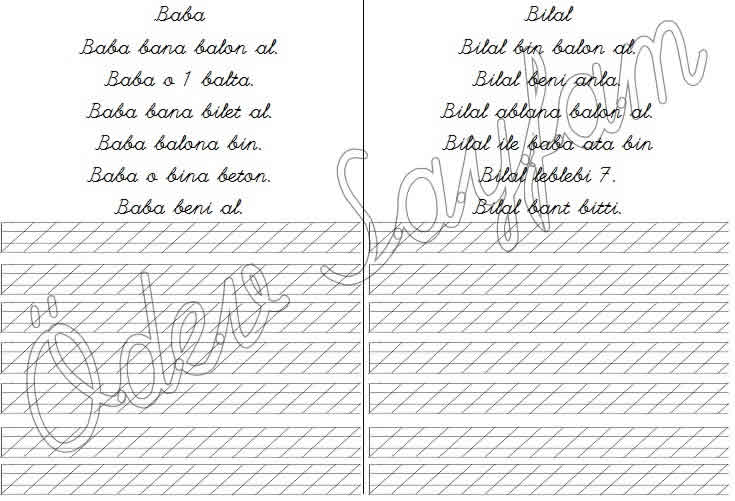 Baba
Baba bana balon al.
Baba o 1 balta.
Baba bana bilet al.
Baba balona bin.
Baba o bina beton.
Baba beni al.
Bilal
Bilal bin balon al.
Bilal beni anla.
Bilal ablana balon al.
Bilal ile baba ata bin
Bilal leblebi 7.
Bilal bant bitti.
Ödev Sayfam